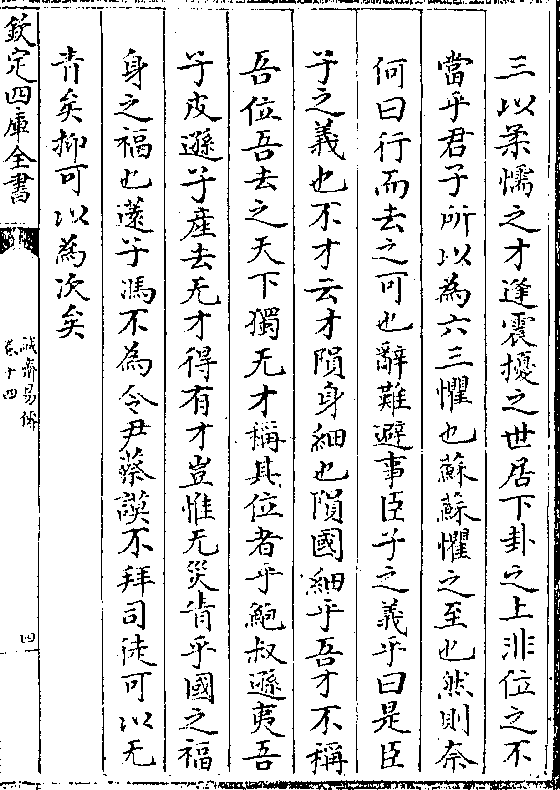 三以柔懦之才逢震擾之世居下卦之上非位之不
當乎君子所以為六三懼也蘇蘇懼之至也然則奈
何曰行而去之可也辭難避事臣子之義乎曰是臣
子之義也不才云才隕身細也隕國細乎吾才不稱
吾位吾去之天下獨无才稱其位者乎鮑叔遜夷吾
子皮遜子產去无才得有才豈惟无災眚乎國之福
身之福也薳子馮不為令尹蔡謨不拜司徒可以无
眚矣抑可以為次矣
欽定四庫全書
誠齋易傳
卷十四
四